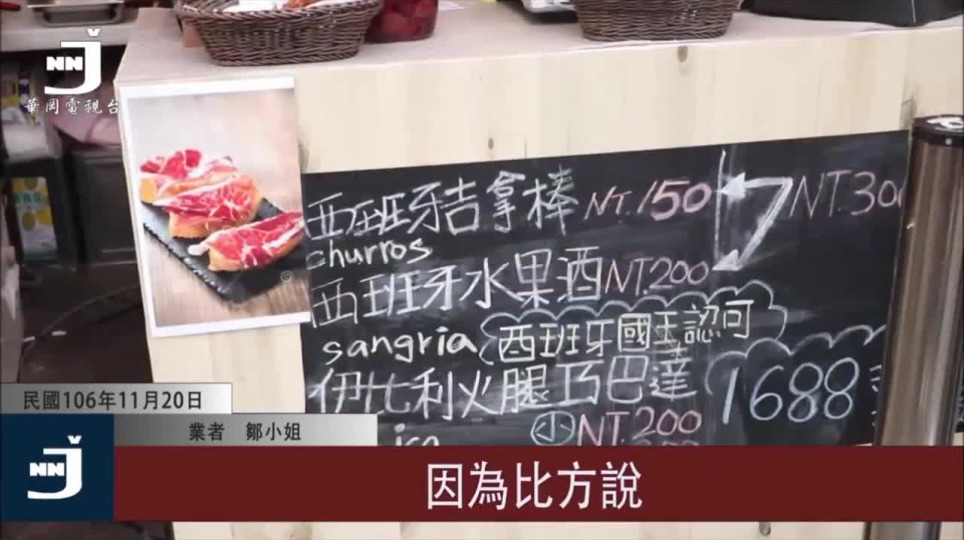 NNJ
華岡電視台
西班牙吉拿棒 NT.150
NT.30
churros
西班牙水果酒 NT.200
sangria 西班牙國王認可
伊比利火腿巧巴達 1688
小 NT.200
民國106年11月20日
業者 鄒小姐
NNJ
因為比方說